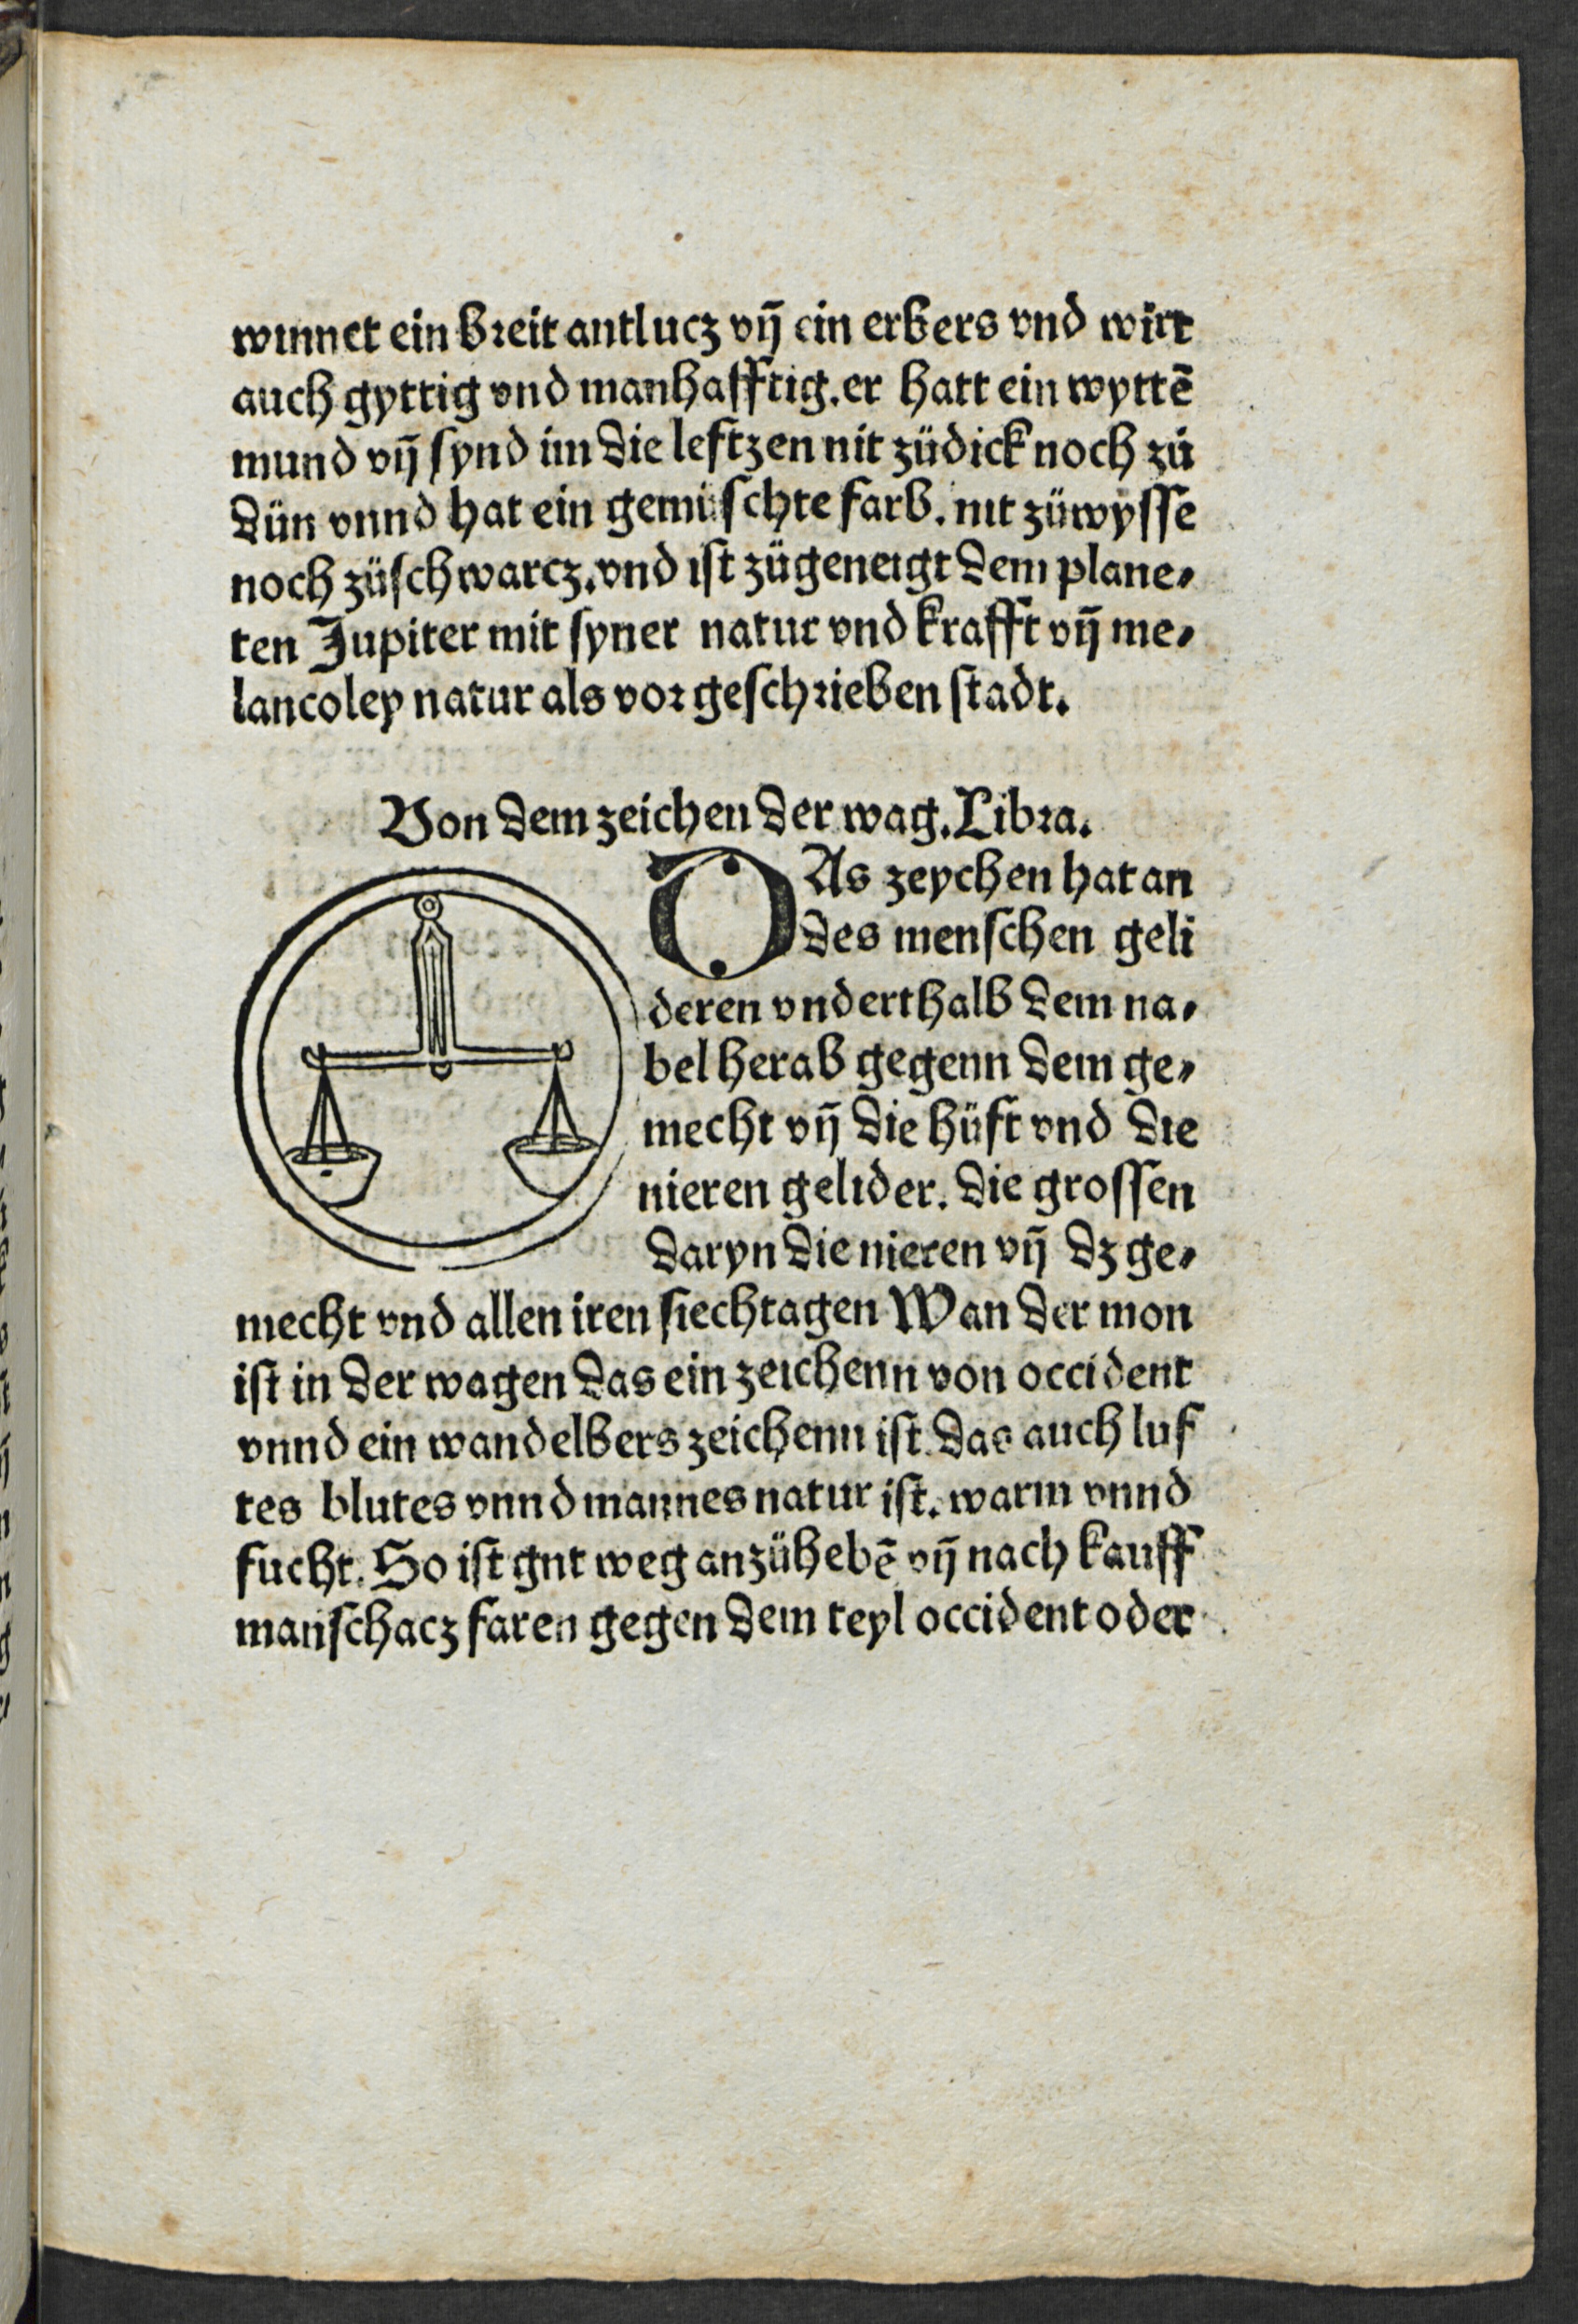 winnet ein breit antlucz vñ ein erbers vnd wirt
auch gyttig vnd manhafftig. er hatt ein wyttē
mund vñ synd im die leftzen nit züdick noch zü
dün vnnd hat ein gemüschte farb. nit züwysse
noch züschwarcz. vnd ist zügeneigt dem plane⸗
ten Jupiter mit syner natur vnd krafft vñ me⸗
lancoley natur als vor geschrieben stadt.
Von dem zeichen der wag. Libra.
DAs zeychen hat an
des menschen geli
deren vnderthalb dem na⸗
bel herab gegenn dem ge⸗
mecht vñ die hüft vnd die
nieren gelider. die grossen
daryn die nieren vñ dz ge⸗
mecht vnd allen iren siechtagen Wan der mon
ist in der wagen das ein zeichenn von occident
vnnd ein wandelbers zeichenn ist. das auch luf
tes blutes vnnd mannes natur ist. warm vnnd
fucht. So ist gut weg anzühebē vñ nach kauff
manschacz faren gegen dem teyl occident oder